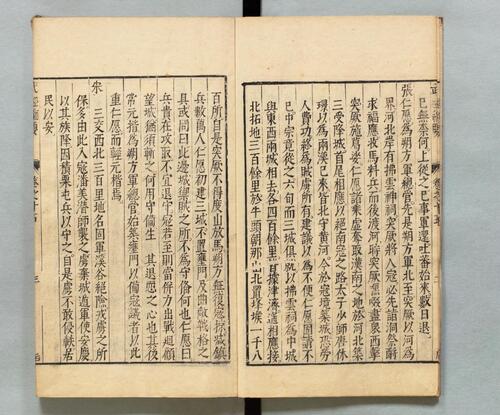 已無奈何上從之已事軍還吐蕃始來數日退
張仁愿爲朔方軍總管先是朔方軍北至突厥以河爲
界河北岸有拂雲神祠突厥將入寇必先詣祠祭酹
求福愿收馬料兵而後渡河時突厥默啜盡衆西擊
突厥施葛娑仁愿請乘虛奪取漢南之地於河北築
三受降城首尾相應以絕南寇之路太子少師唐休
璟以爲兩漢已來皆北守黃河今於寇境築城恐勞
人費功終將爲賊所有建議以爲不便仁愿固請不
已中宗竟從之六旬而三城俱就以拂雲祠爲中城
與東西兩城相去各四百餘里皆據津濟遙相應接
北拓地三百餘里於牛頭朝那山北置烽堠一千八
百所自是突厥不得度山放馬朔方無復寇掠減鎮
兵數萬人仁愿初建三城不置壅門及曲敵戰格之
具或問曰此邊城禦賊之所不爲守備何也仁愿曰
兵貴在攻取不宜退守寇若至則當併力出戰迴顧
望城猶須斬之何用守備生其退恧之心也其後
常元楷爲朔方軍總管始築壅門以備寇議者以此
重仁愿而輕元楷焉
宋 三交西北三百里地名固軍溪谷絕險戎虜之所
保多由此入寇潘美潛師襲之虜棄城遁軍使安慶
以其族降因積粟屯兵以守之自是虜不敢侵軼居
民以安